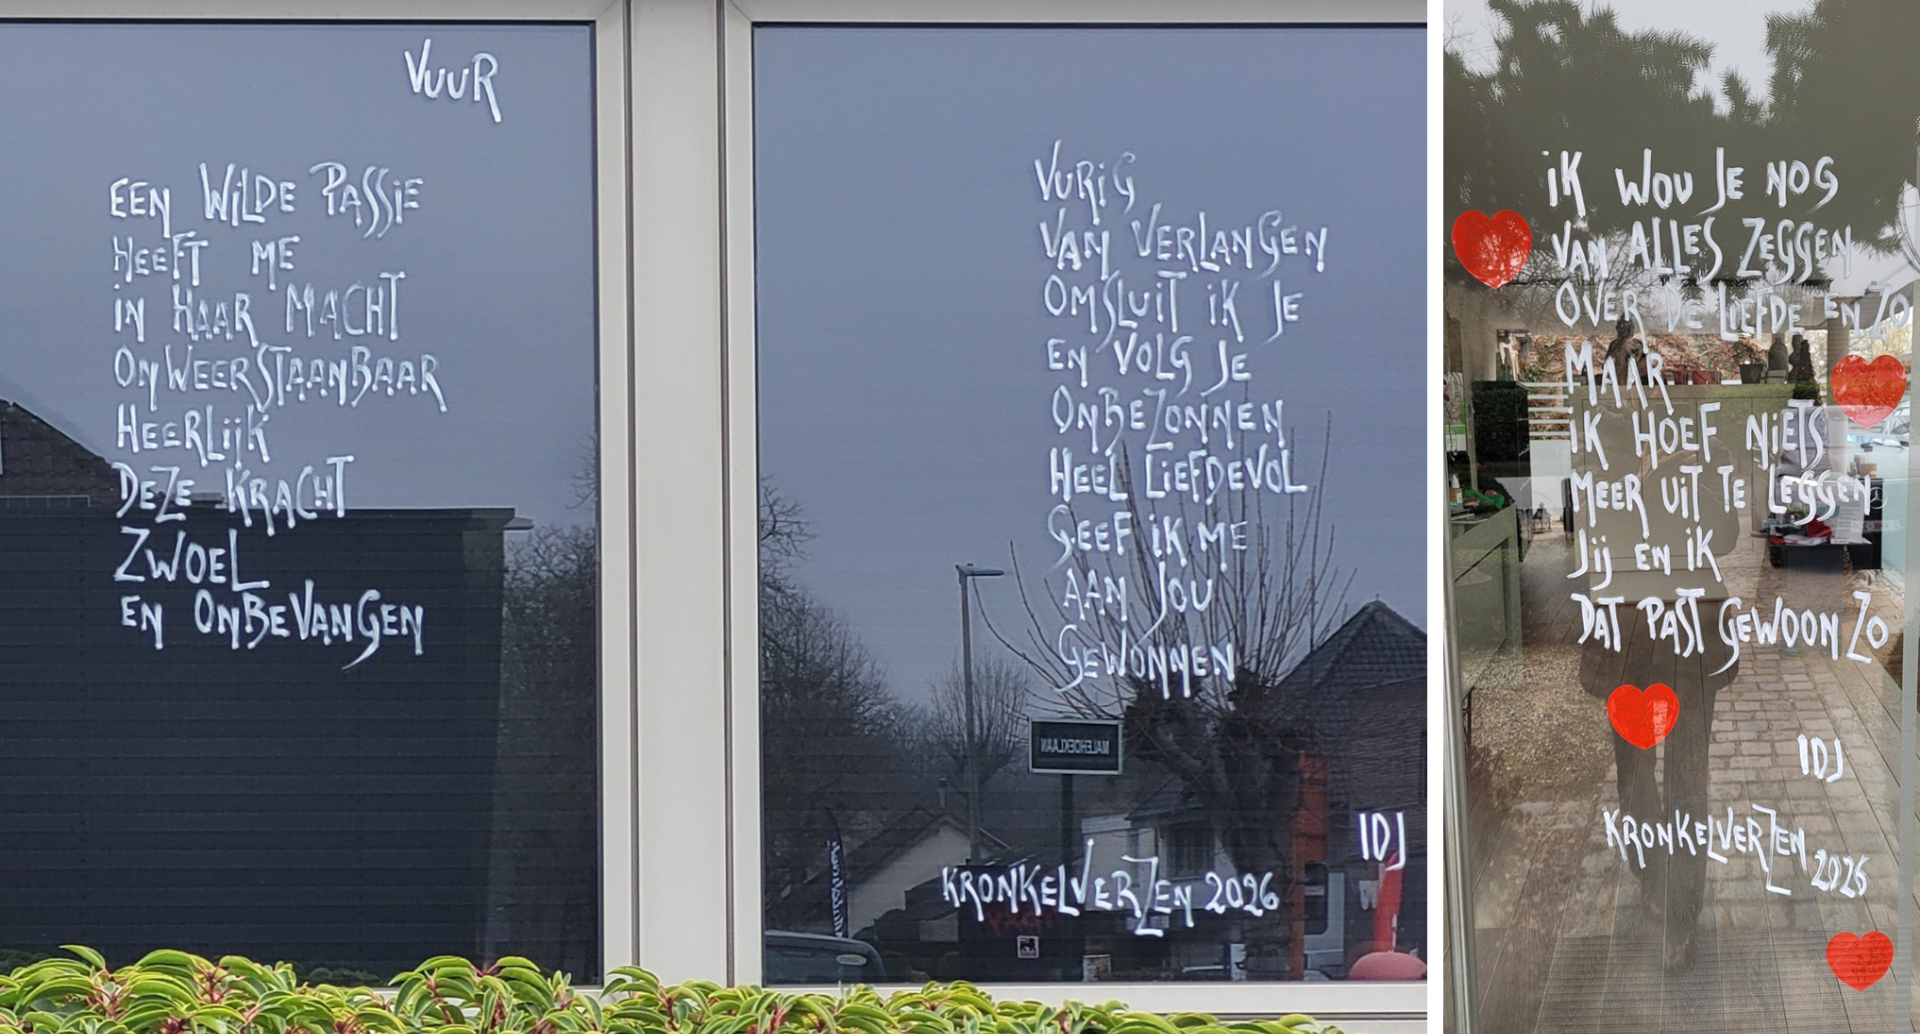 VUUR
EEN WILDE PASSIE
HEEFT ME
IN HAAR MACHT
ONWEERSTAANBAAR
HEERLIJK
DEZE KRACHT
ZWOEL
EN ONBEVANGEN
VURIG
VAN VERLANGEN
OMSLUIT IK JE
EN VOLG JE
ONBEZONNEN
HEEL LIEFDEVOL
GEEF IK ME
AAN JOU
GEWONNEN
MALEHOEKLAAN
IDJ
KRONKELVERZEN 2026
IK WOU JE NOG
VAN ALLES ZEGGEN
OVER DE LIEFDE EN ZO
MAAR
IK HOEF NIETS
MEER UIT TE LEGGEN
JIJ EN IK
DAT PAST GEWOON ZO
IDJ
KRONKELVERZEN 2026